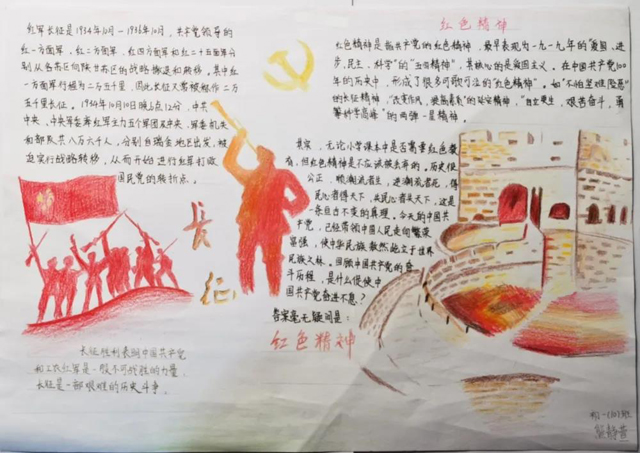 红军长征是1934年10月-1936年10月,共产党领导的
红一方面军,红二方面军,红四方面军和红二十五面军分
别从各苏区向陕甘苏区的战略撤退和转移。其中红
一方面军行程为二万五千里,因此长征又常被称作二万
五千里长征。1934年10月10日晚上六12分,中共
中央、中央军委率红军主力五个师团及中央、军委机关
和部队共八万六千人,分别自瑞金地区出发,被
迫实行战略转移,从而开始进行红军打败
国民党的转折点。
长征
长征胜利表明中国共产党
和工农红军是一股不可战胜的力量,
长征是一部艰难的历史斗争。
红色精神
红色精神是指共产党的红色精神,最早表现为一九一九年的"爱国、进
步、民主、科学"的"五四精神",其核心的是爱国主义。在中国共产党100
年的历史中,形成了很多可歌可泣的"红色精神"。如"不怕坚难险恶"
的长征精神,"自立更生、艰苦奋斗,勇
攀科学高峰"的两弹一星精神。
其实,无论小学课本中是否离章红色教
育,但红色精神是不应该被去弃的。历史很
公正,顺潮流者生,逆潮流者死,得
民心者得天下,失民心者失天下,这是
一条亘古不变的真理。今天的中国共
产党,已经带领中国人民走向繁荣
富强,使中华民族毅然屹立于世界
民族之林。回顾中国共产党的奋
斗历程,是什么促使中
国共产党奋进不息?
答案毫无疑问是:
红色精神